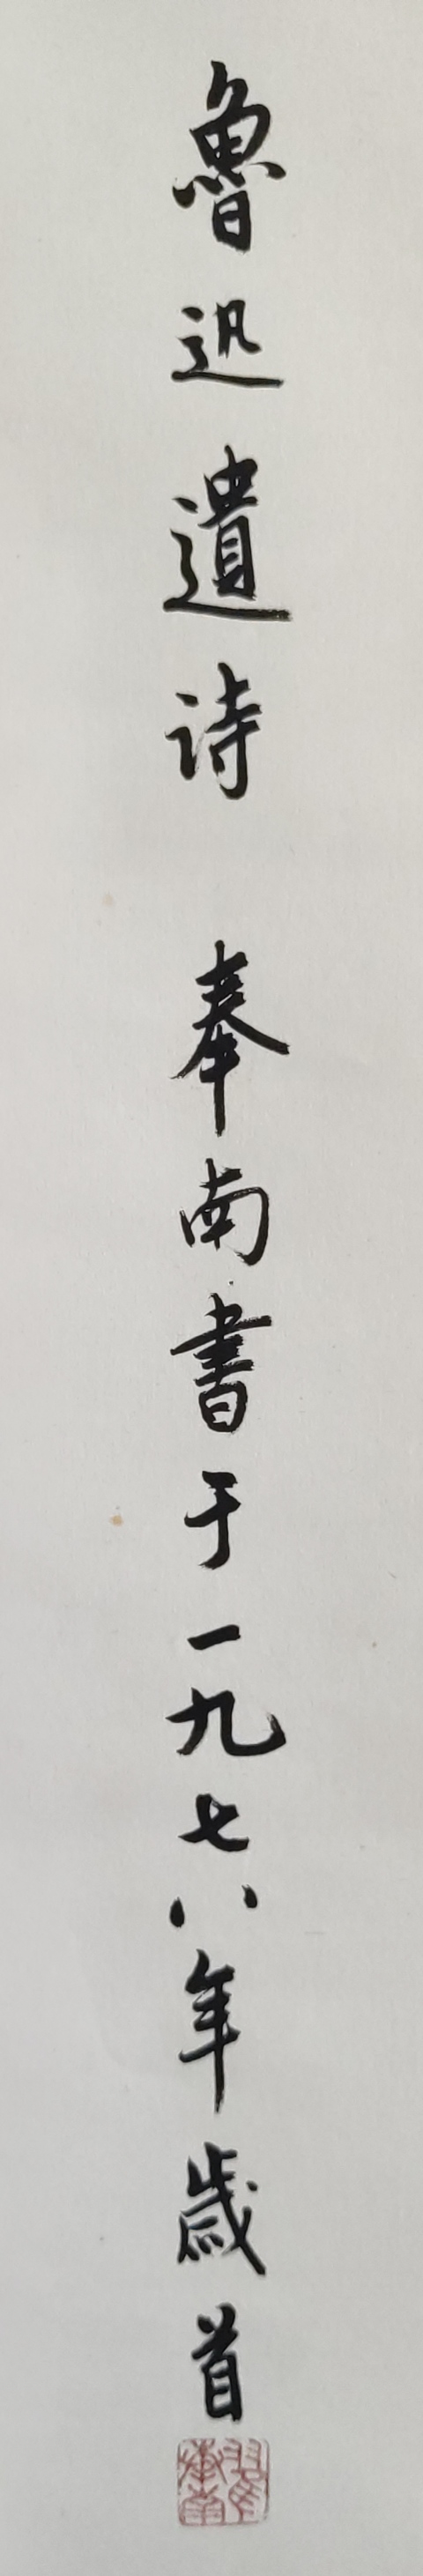 魯迅遺诗 奉南書于一九七八年歲首